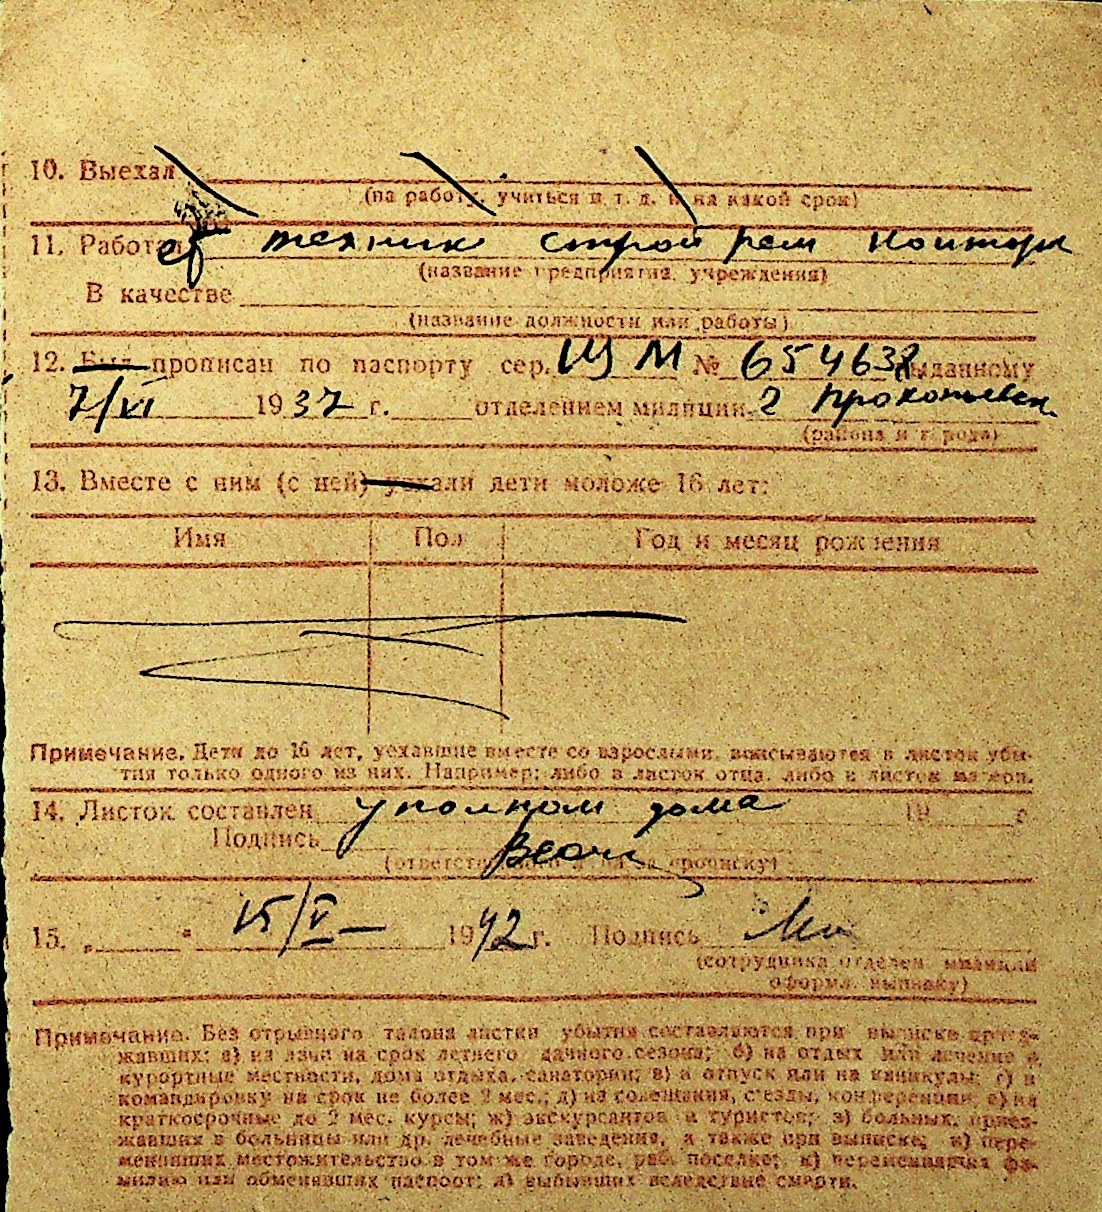 10. Выехал
(на работу, учиться и т. д. и на какой срок)
11. Работал техник строй рем конторы
(название предприятия, учреждения)
В качестве
(название должности или работы)
12. Был прописан по паспорту сер. ШМ № 654638 выданному
7/VI 1937 г. отделением милиции 2 Прокопьевск
(района и города)
13. Вместе с ним (с ней) уехали дети моложе 16 лет:
Имя Пол Год и месяц рождения
Примечание. Дети до 16 лет, уехавшие вместе со взрослыми, вписываются в листок убы-
тия только одного из них. Например: либо в листок отца, либо в листок матери.
14. Листок составлен дома 19 г.
Подпись
(ответственного за прописку)
15. „ “ 15/V 1942 г. Подпись
(сотрудника отделен. милиции
оформл. выписку)
Примечание. Без отрывного талона листки убытия составляются при выписке приез-
жавших: а) на дачи на срок летнего дачного сезона; б) на отдых или лечение в
курортные местности, дома отдыха, санатории; в) в отпуск или на каникулы; г) в
командировку на срок не более 2 мес.; д) на совещания, с'езды, конференции; е) на
краткосрочные до 2 мес. курсы; ж) экскурсантов и туристов; з) больных, приез-
жавших в больницы или др. лечебные заведения, а также при выписке; и) пере-
менивших местожительство в том же городе, раб. поселке; к) переменивших фа-
милию или обменявших паспорт; л) выбывших вследствие смерти.